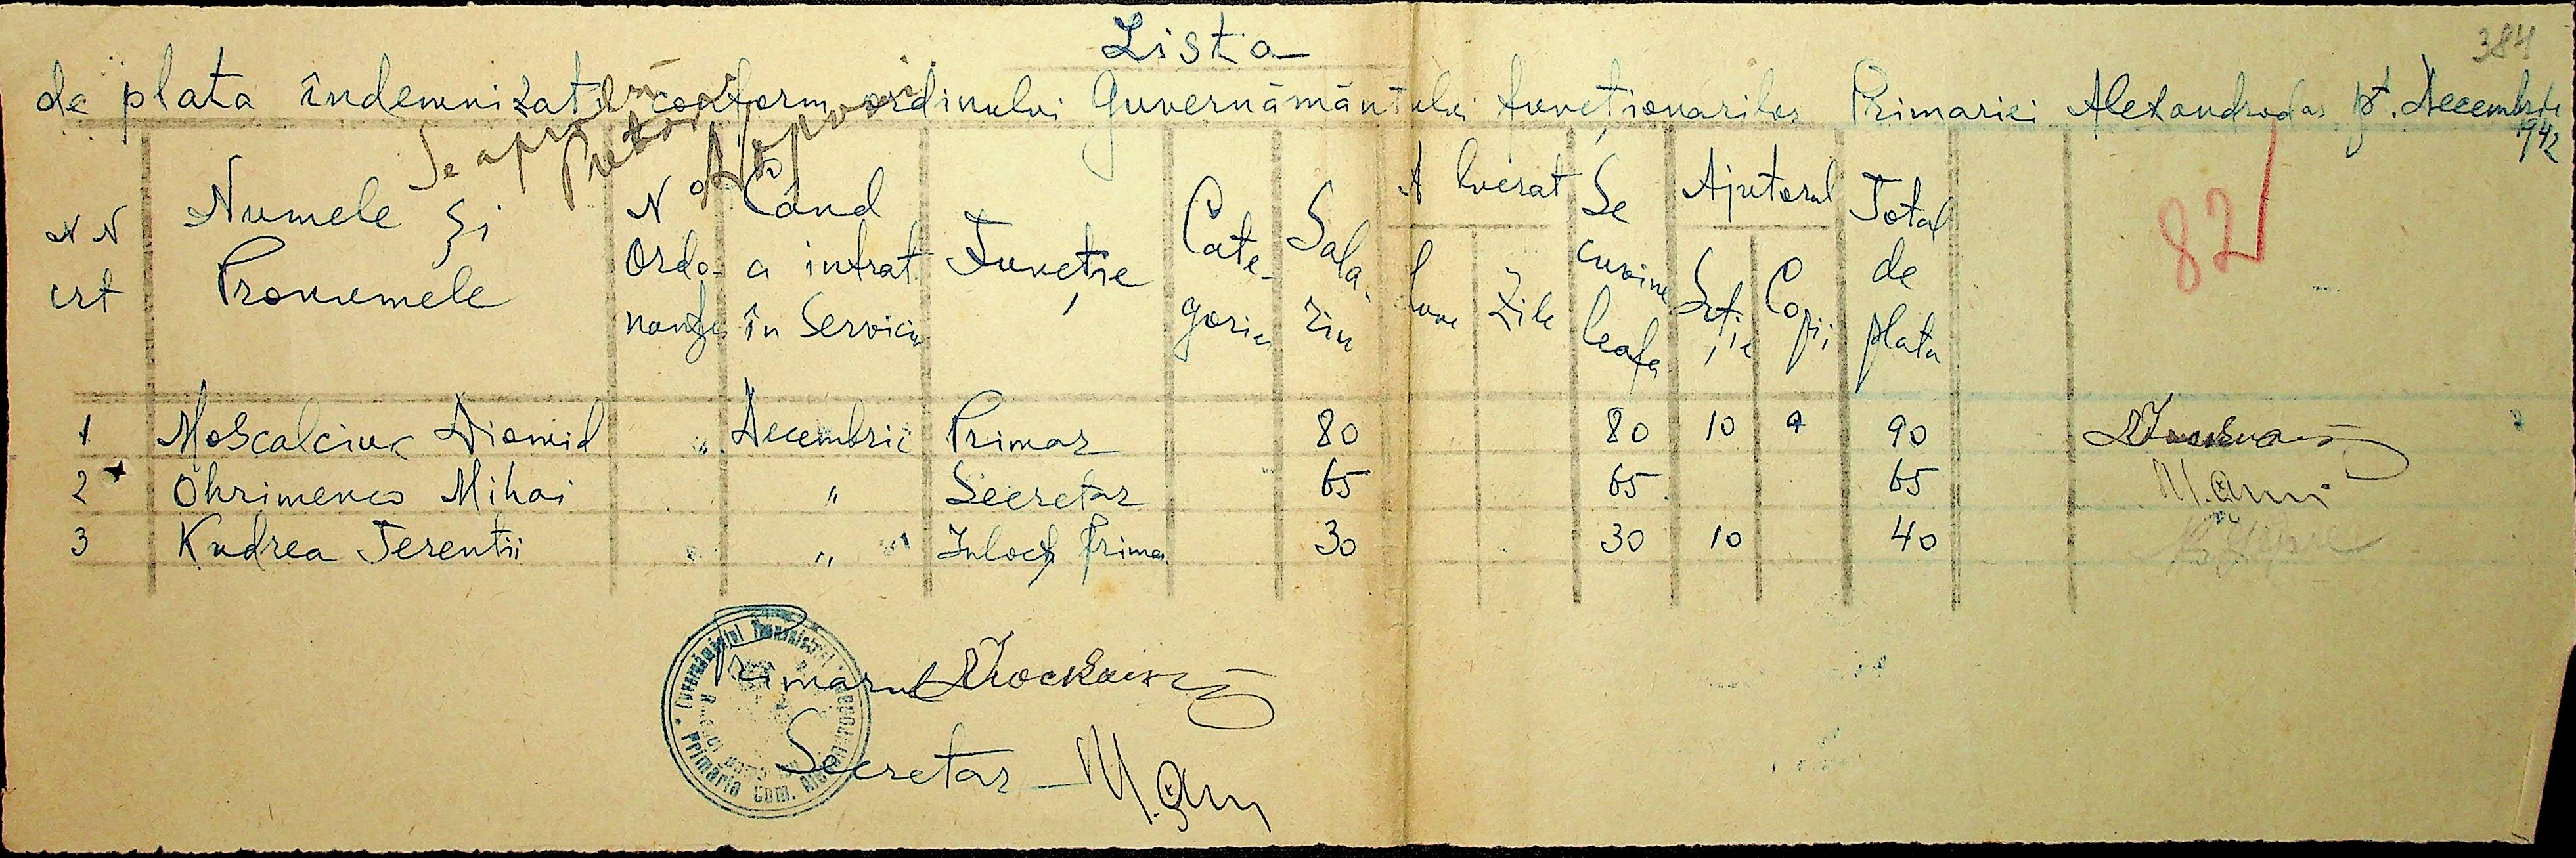 384
Lista
de plata îndemnizatii conform ordinului Guvernământului funcționarilor Primariei Alexandrodar pt. Decembrie
1942
Se aprobă
Pretor
82
NN crt
Numele și Pronumele
No Ordo-nanței
Când a intrat în Serviciu
Funcție
Cate-gorie
Sala-riu
A lucrat
Luni
Zile
Se cuvine leafa
Ajutorul
Soție
Copii
Total de plata
1 Moscalciuc Diomid " Decembrie Primar 80 80 10 90
2 Ohrimenco Mihai " Secretar 65 65 65
3 Kudrea Terentii " " Inloct Primar 30 30 10 40
Primarul
Secretar –
Guvernământul Transnistriei
Primăria Com. Alexandrodar